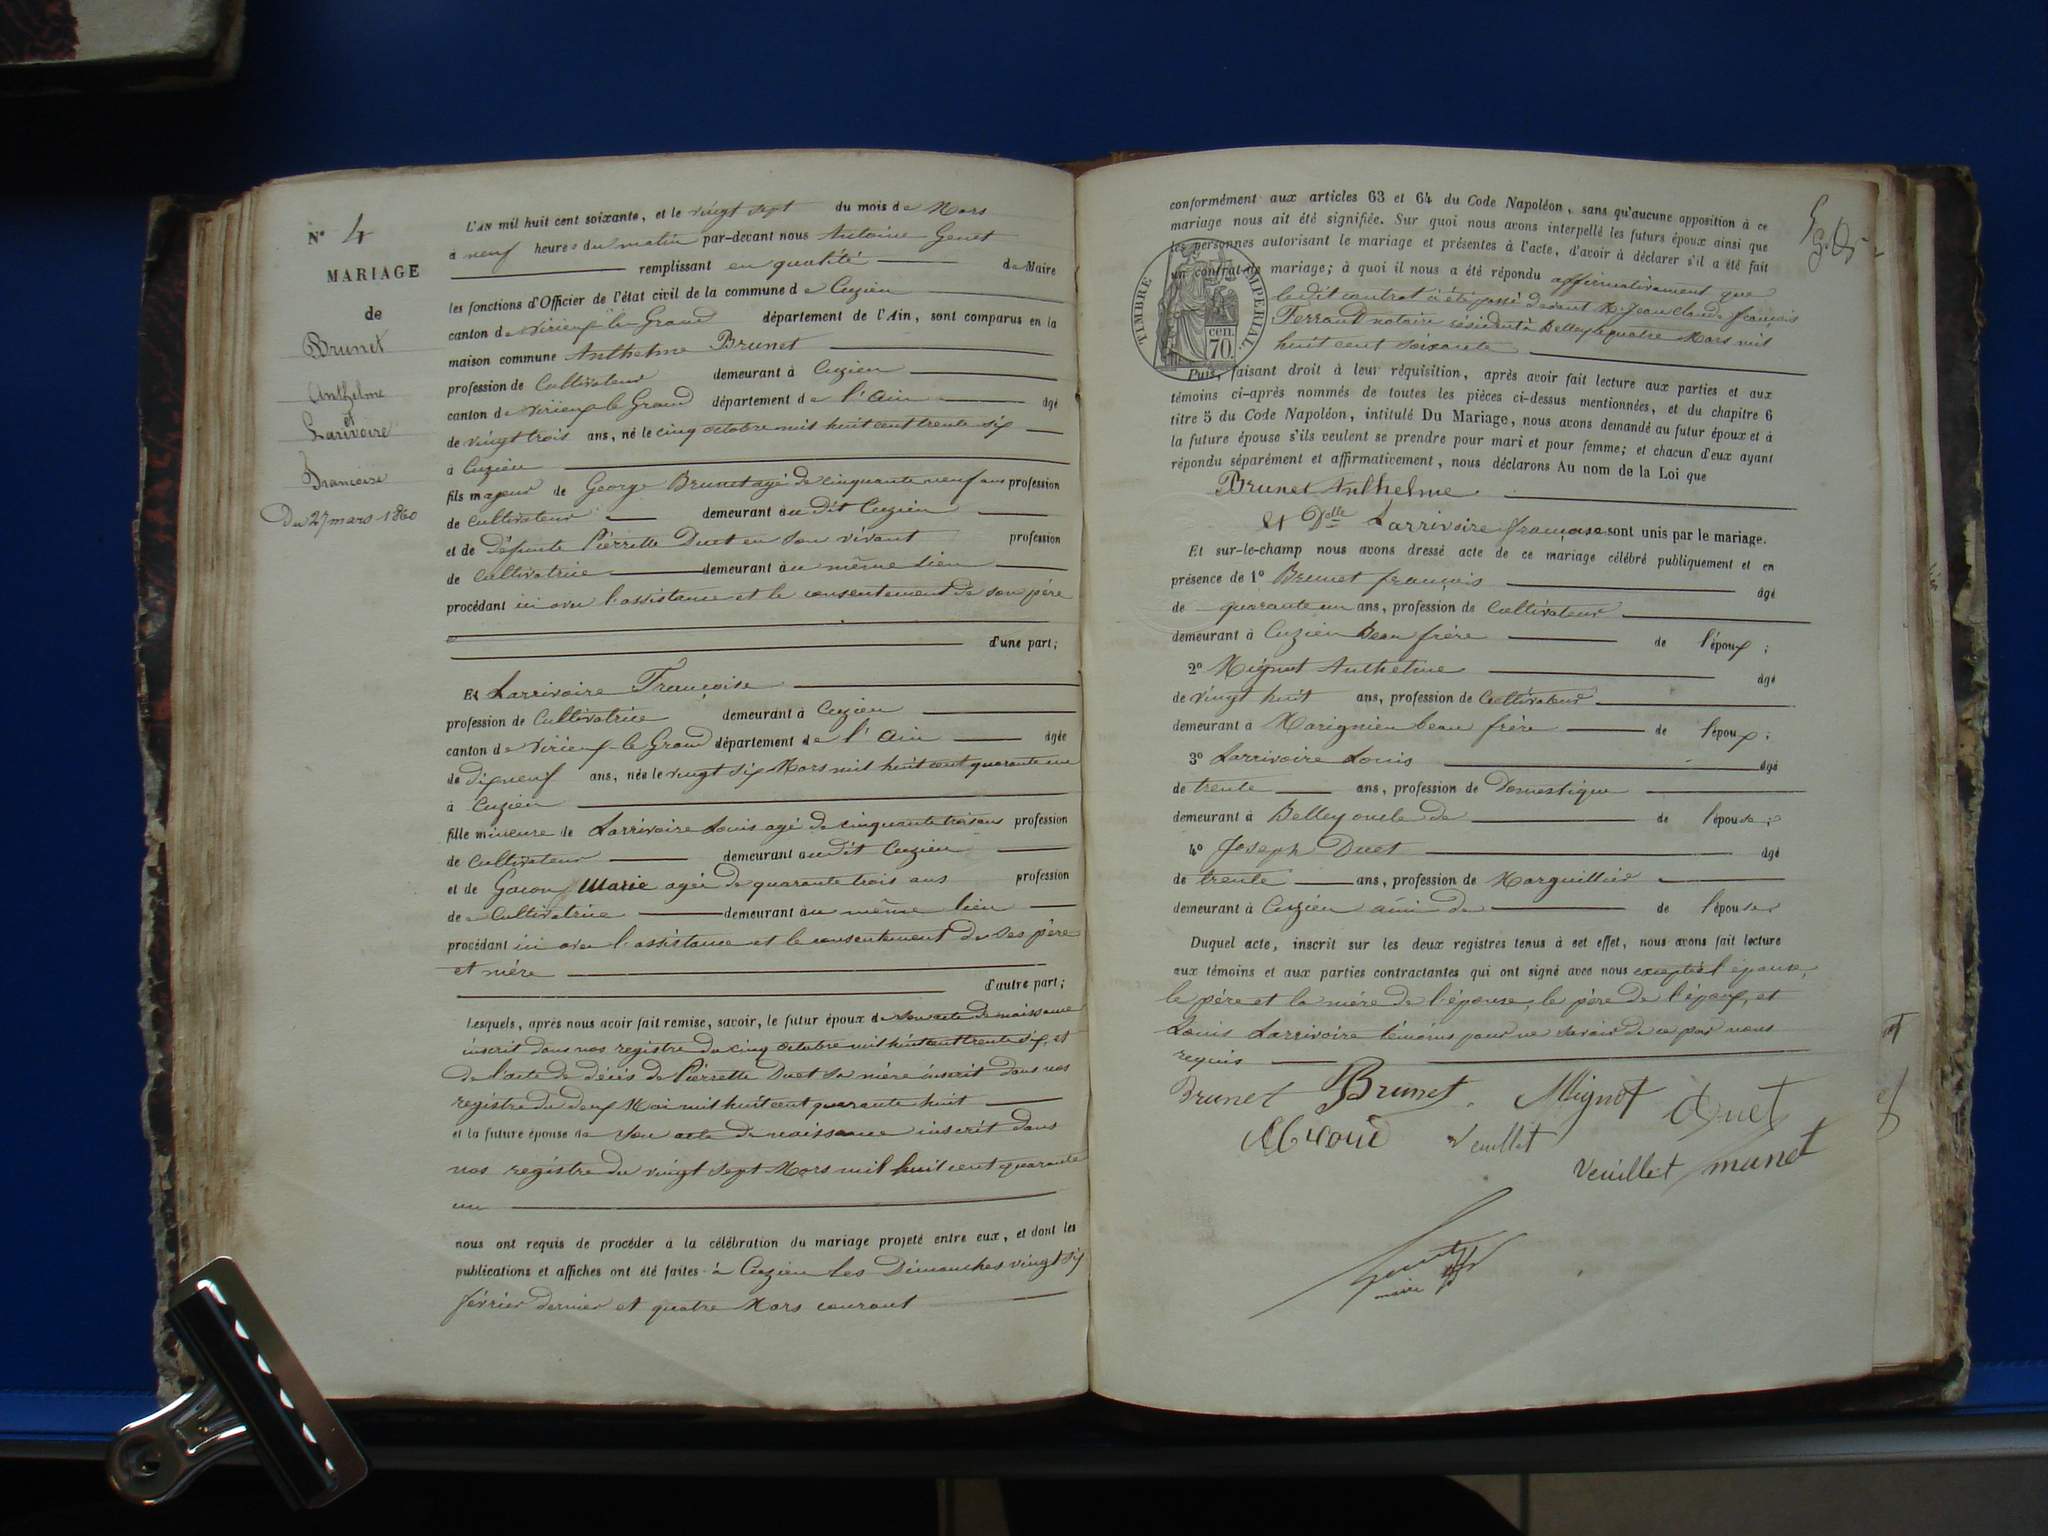 N° 4
MARIAGE
de
Brunet
Anthelme
et
Larivoire
Francoise
Du 27 mars 1860
L'AN mil huit cent soixante, et le vingt sept du mois de Mars
à neuf heures du matin par-devant nous Antoine Genet
remplissant en qualité de Maire
les fonctions d'Officier de l'état civil de la commune de Cuzieu
canton de Virieux-le-Grand département de l'Ain, sont comparus en la
maison commune Anthelme Brunet
profession de Cultivateur demeurant à Cuzieu
canton de Virieux-le-Grand département de l'Ain âgé
de vingt trois ans, né le cinq octobre mil huit cent trente six
à Cuzieu
fils majeur de George Brunet agé de cinquante neuf ans profession
de cultivateur demeurant au dit Cuzieu
et de défunte Pierrette Duet en son vivant profession
de Cultivatrice demeurant au même lieu
procédant ici avec l'assistance et le consentement de son père
d'une part;
Et Larrivoire Françoise
profession de Cultivatrice demeurant à Cuzieu
canton de Virieux-le-Grand département de l'Ain âgée
de dix neuf ans, née le vingt six Mars mil huit cent quarante un
à Cuzieu
fille mineure de Larrivoire Louis agé de cinquante trois ans profession
de Cultivateur demeurant au dit Cuzieu
et de Marie agée de quarante trois ans profession
de Cultivatrice demeurant au même lieu
procédant ici avec l'assistance et le consentement de ses père
et mère
d'autre part;
Lesquels, après nous avoir fait remise, savoir, le futur époux de son acte de naissance
inscrit dans nos registre du cinq octobre mil huit cent trente six, et
de l'acte de décès de Pierrette Duet sa mère inscrit dans nos
registre du deux Mai mil huit cent quarante huit
et la future épouse de son acte de naissance inscrit dans
nos registre du vingt sept Mars mil huit cent quarante
un
nous ont requis de procéder à la célébration du mariage projeté entre eux, et dont les
publications et affiches ont été faites à Cuzieu les Dimanches vingt six
février dernier et quatre Mars courant
conformément aux articles 63 et 64 du Code Napoléon, sans qu'aucune opposition à ce
mariage nous ait été signifiée. Sur quoi nous avons interpellé les futurs époux ainsi que
les personnes autorisant le mariage et présentes à l'acte, d'avoir à déclarer s'il a été fait
un contrat de mariage; à quoi il nous a été répondu affirmativement que
ledit contrat a été passé devant Me Jean Claude François
Ferrand notaire résident à Belley le quatre Mars mil
huit cent soixante
TIMBRE IMPERIAL
70 cen.
Puis, faisant droit à leur réquisition, après avoir fait lecture aux parties et aux
témoins ci-après nommés de toutes les pièces ci-dessus mentionnées, et du chapitre 6
titre 5 du Code Napoléon, intitulé Du Mariage, nous avons demandé au futur époux et à
la future épouse s'ils veulent se prendre pour mari et pour femme; et chacun d'eux ayant
répondu séparément et affirmativement, nous déclarons Au nom de la Loi que
Brunet Anthelme
et Delle Larrivoire françoise sont unis par le mariage.
Et sur-le-champ nous avons dressé acte de ce mariage célébré publiquement et en
présence de 1° Brunet françois âgé
de quarante un ans, profession de Cultivateur
demeurant à Cuzieu Beau frère de l'époux;
2° Mignot Anthelme âgé
de vingt huit ans, profession de Cultivateur
demeurant à Marignieu beau frère de l'époux;
3° Larrivoire Louis âgé
de trente ans, profession de Domestique
demeurant à Belley oncle de de l'épouse;
4° Joseph Duet âgé
de trente ans, profession de Marguillier
demeurant à Cuzieu ami de de l'épouse
Duquel acte, inscrit sur les deux registres tenus à cet effet, nous avons fait lecture
aux témoins et aux parties contractantes qui ont signé avec nous excepté l'épouse,
le père et la mère de l'épouse, le père de l'époux, et
Louis Larrivoire témoins pour ne savoir de ce par nous
requis
Brunet Brunet Mignot Duet
Veuillet
Veuillet
maire